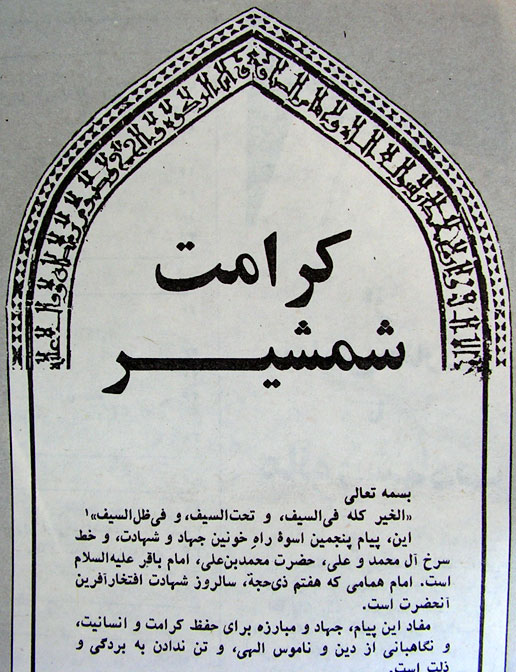 کرامت
شمشیر
بسمه تعالی
«الخیر کله فی‌السیف، و تحت‌السیف، و فی‌ظل‌السیف»۱
این، پیام پنجمین اسوهٔ راهِ خونین جهاد و شهادت، و خط
سرخ آل محمد و علی، حضرت محمدبن‌علی، امام باقر علیه‌السلام
است. امام همامی که هفتم ذی‌حجة، سالروز شهادت افتخارآفرین
آنحضرت است.
مفاد این پیام، جهاد و مبارزه برای حفظ کرامت و انسانیت،
و نگاهبانی از دین و ناموس الهی، و تن ندادن به بردگی و
ذلت است.